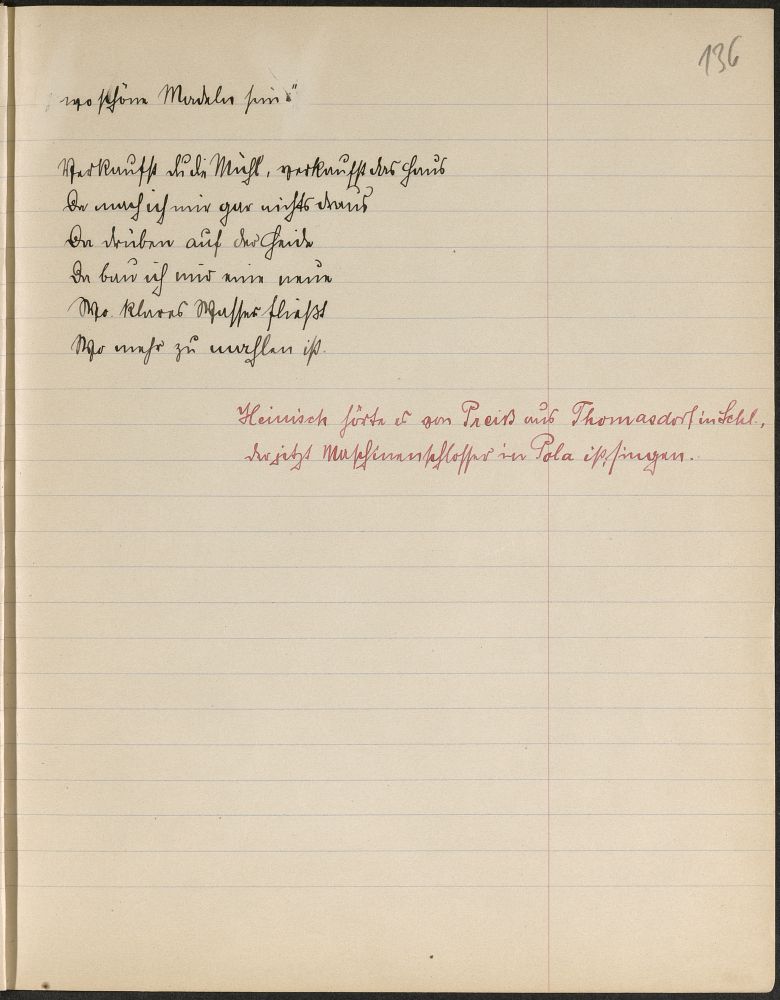 136
wo schöne Madeln sein"
Verkaufst du die Mühl, verkaufst das Haus
Da mach ich mir gar nichts draus
Da drüben auf der Heide
Da bau ich mir eine neue
Wo klares Wasser fließt
Wo mehr zu mahlen ist.
Heinisch hörte es von Preiß aus Thomasdorf in Schl.,
der jetzt Maschinenschlosser in Pola ist, singen.